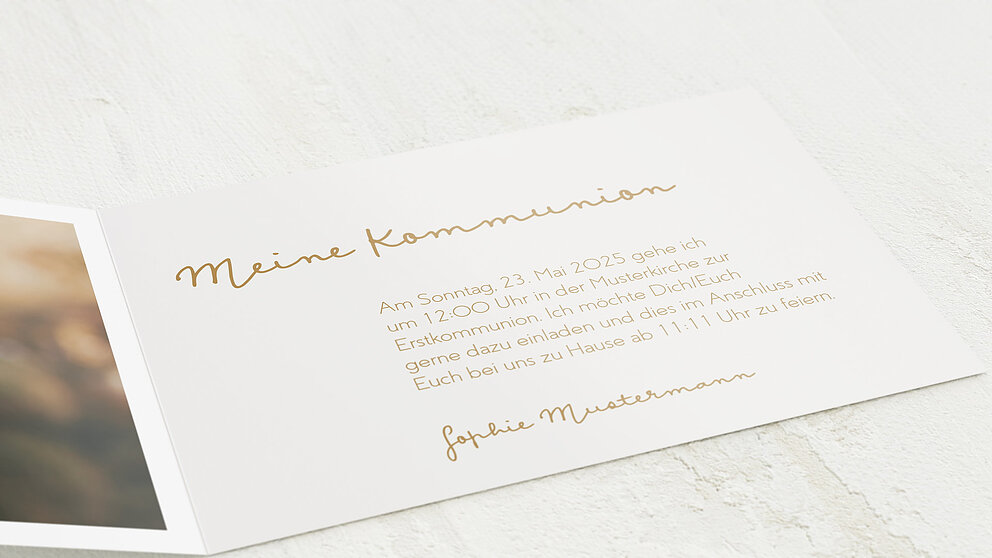 Meine Kommunion
Am Sonntag, 23. Mai 2025 gehe ich
um 12:00 Uhr in der Musterkirche zur
Erstkommunion. Ich möchte Dich/Euch
gerne dazu einladen und dies im Anschluss mit
Euch bei uns zu Hause ab 11:11 Uhr zu feiern.
Sophie Mustermann